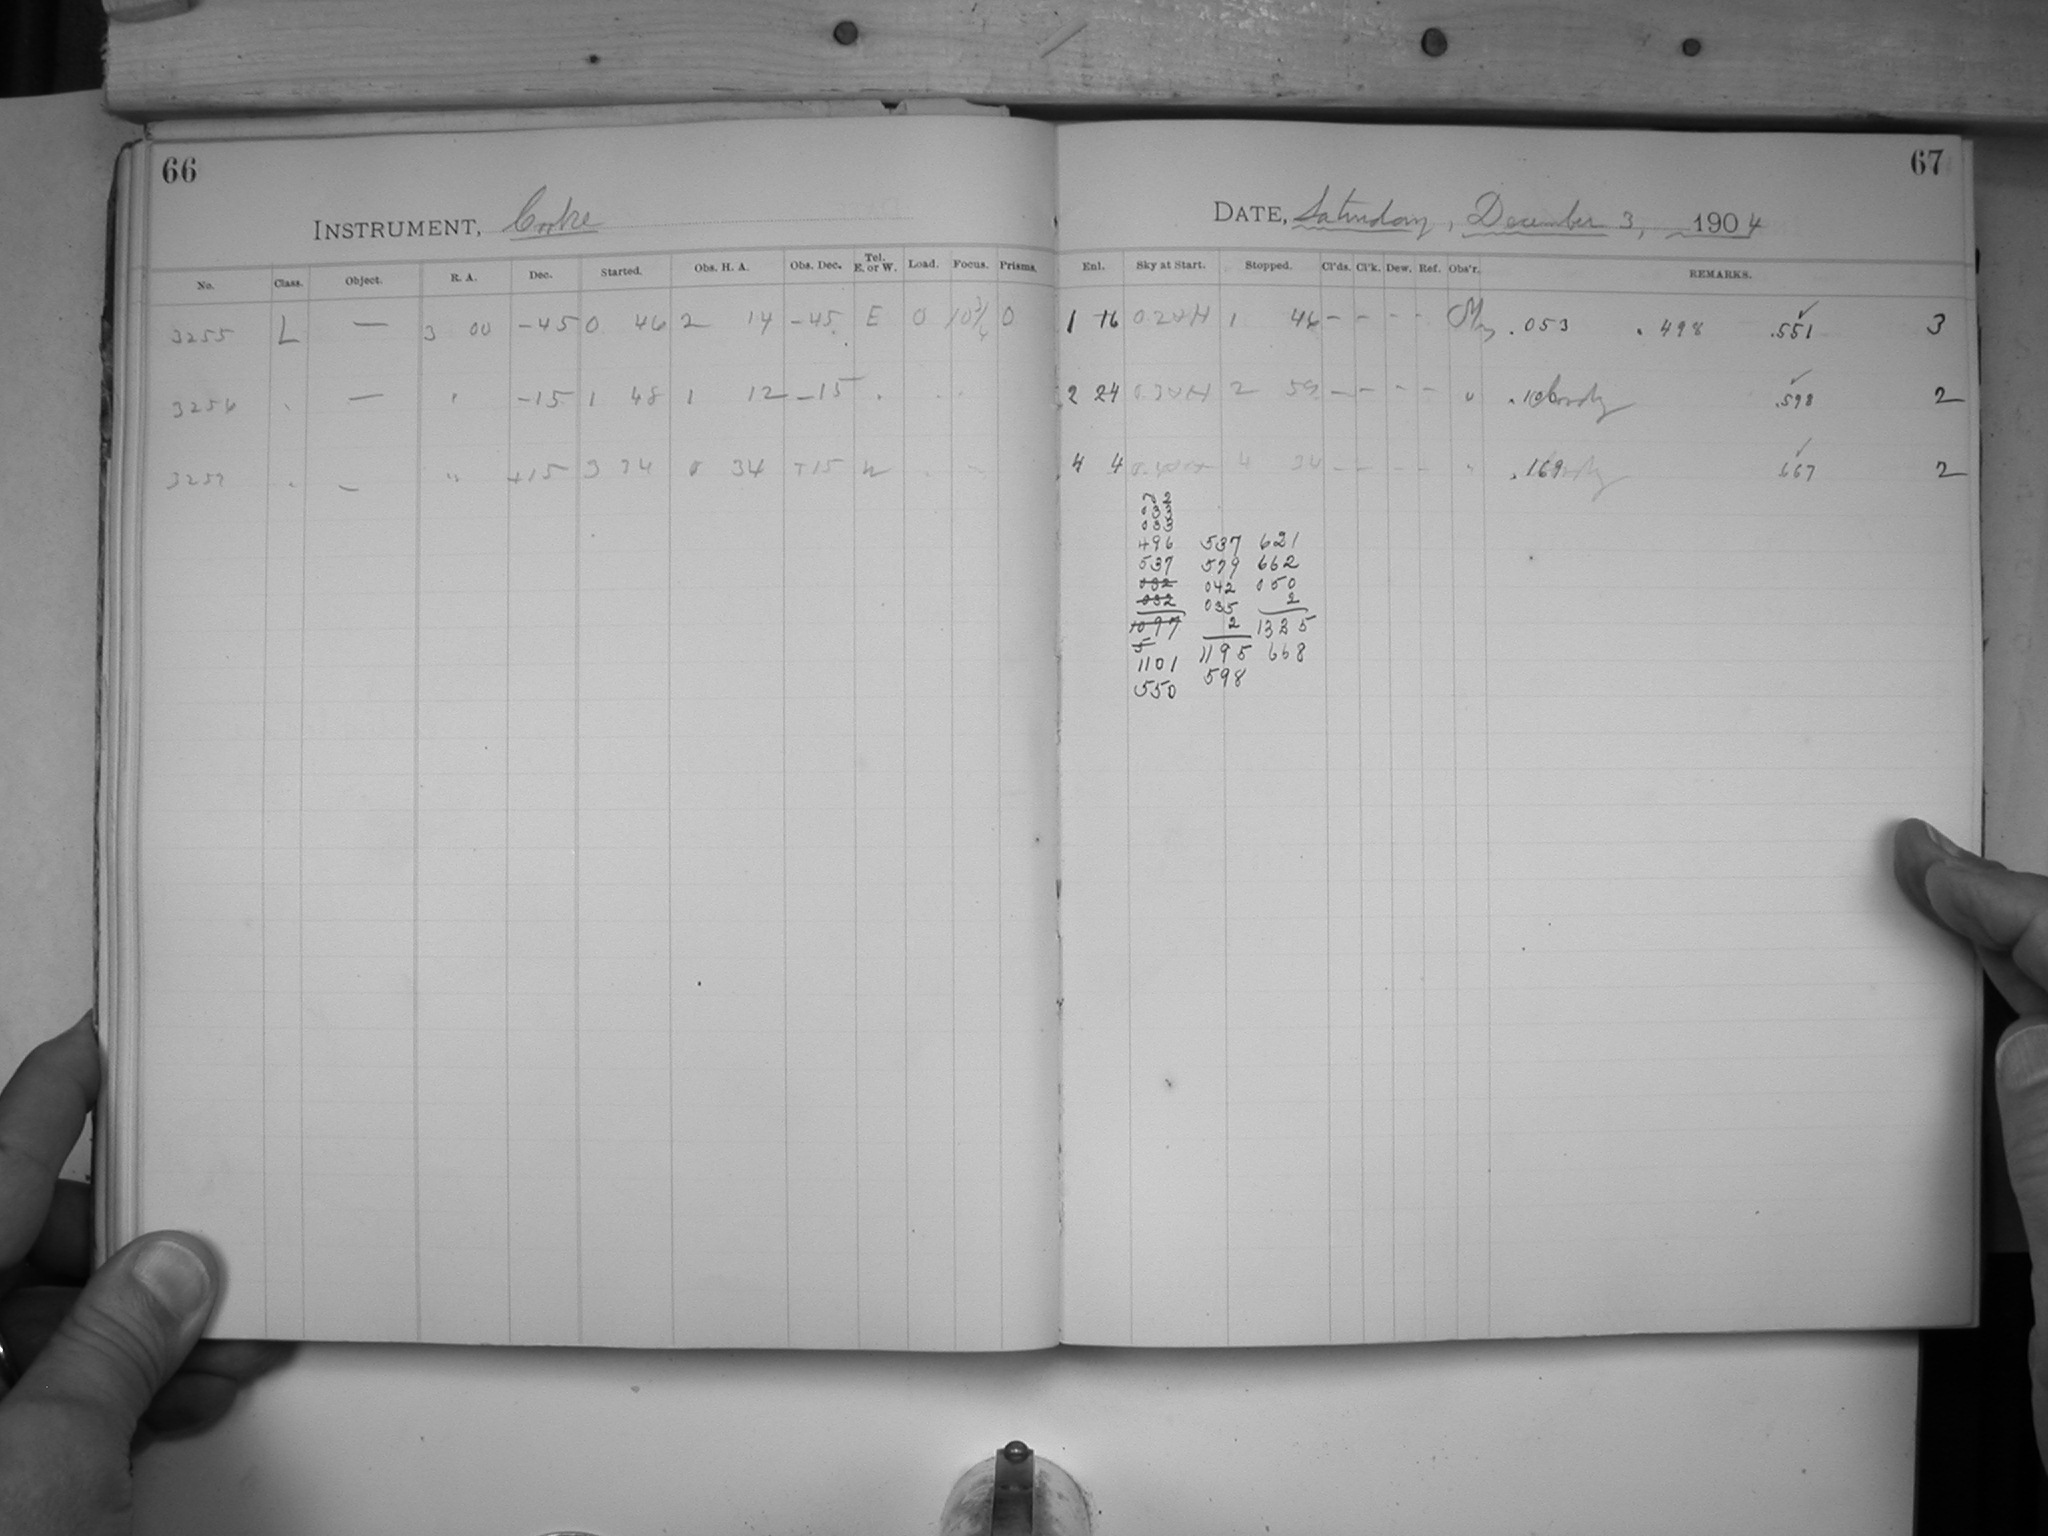 66
INSTRUMENT, Cooke
No. Class. Object. R. A. Dec. Started. Obs. H. A. Obs. Dec. Tel. E. or W. Load. Focus. Prisms.
3255 L — 3 00 -45 0 46 2 14 -45 E 0 10 3/4 0
3256 " — " -15 1 48 1 12 -15 "
" — " +15 3 34 0 34 +15 W
67
DATE, Saturday, December 3, 1904
Enl. Sky at Start. Stopped. Cl'ds. Cl'k. Dew. Ref. Obs'r. REMARKS.
1 16 1 46 - - - - .053 .498 .551 3
2 24 2 59 - - - - " .598 2
4 4 4 34 - - - - " .169 .667 2
2
033
033
496 537 621
537 579 662
032 042 050
032 035 2
1097 2 1335
5
1101 1195 668
550 598